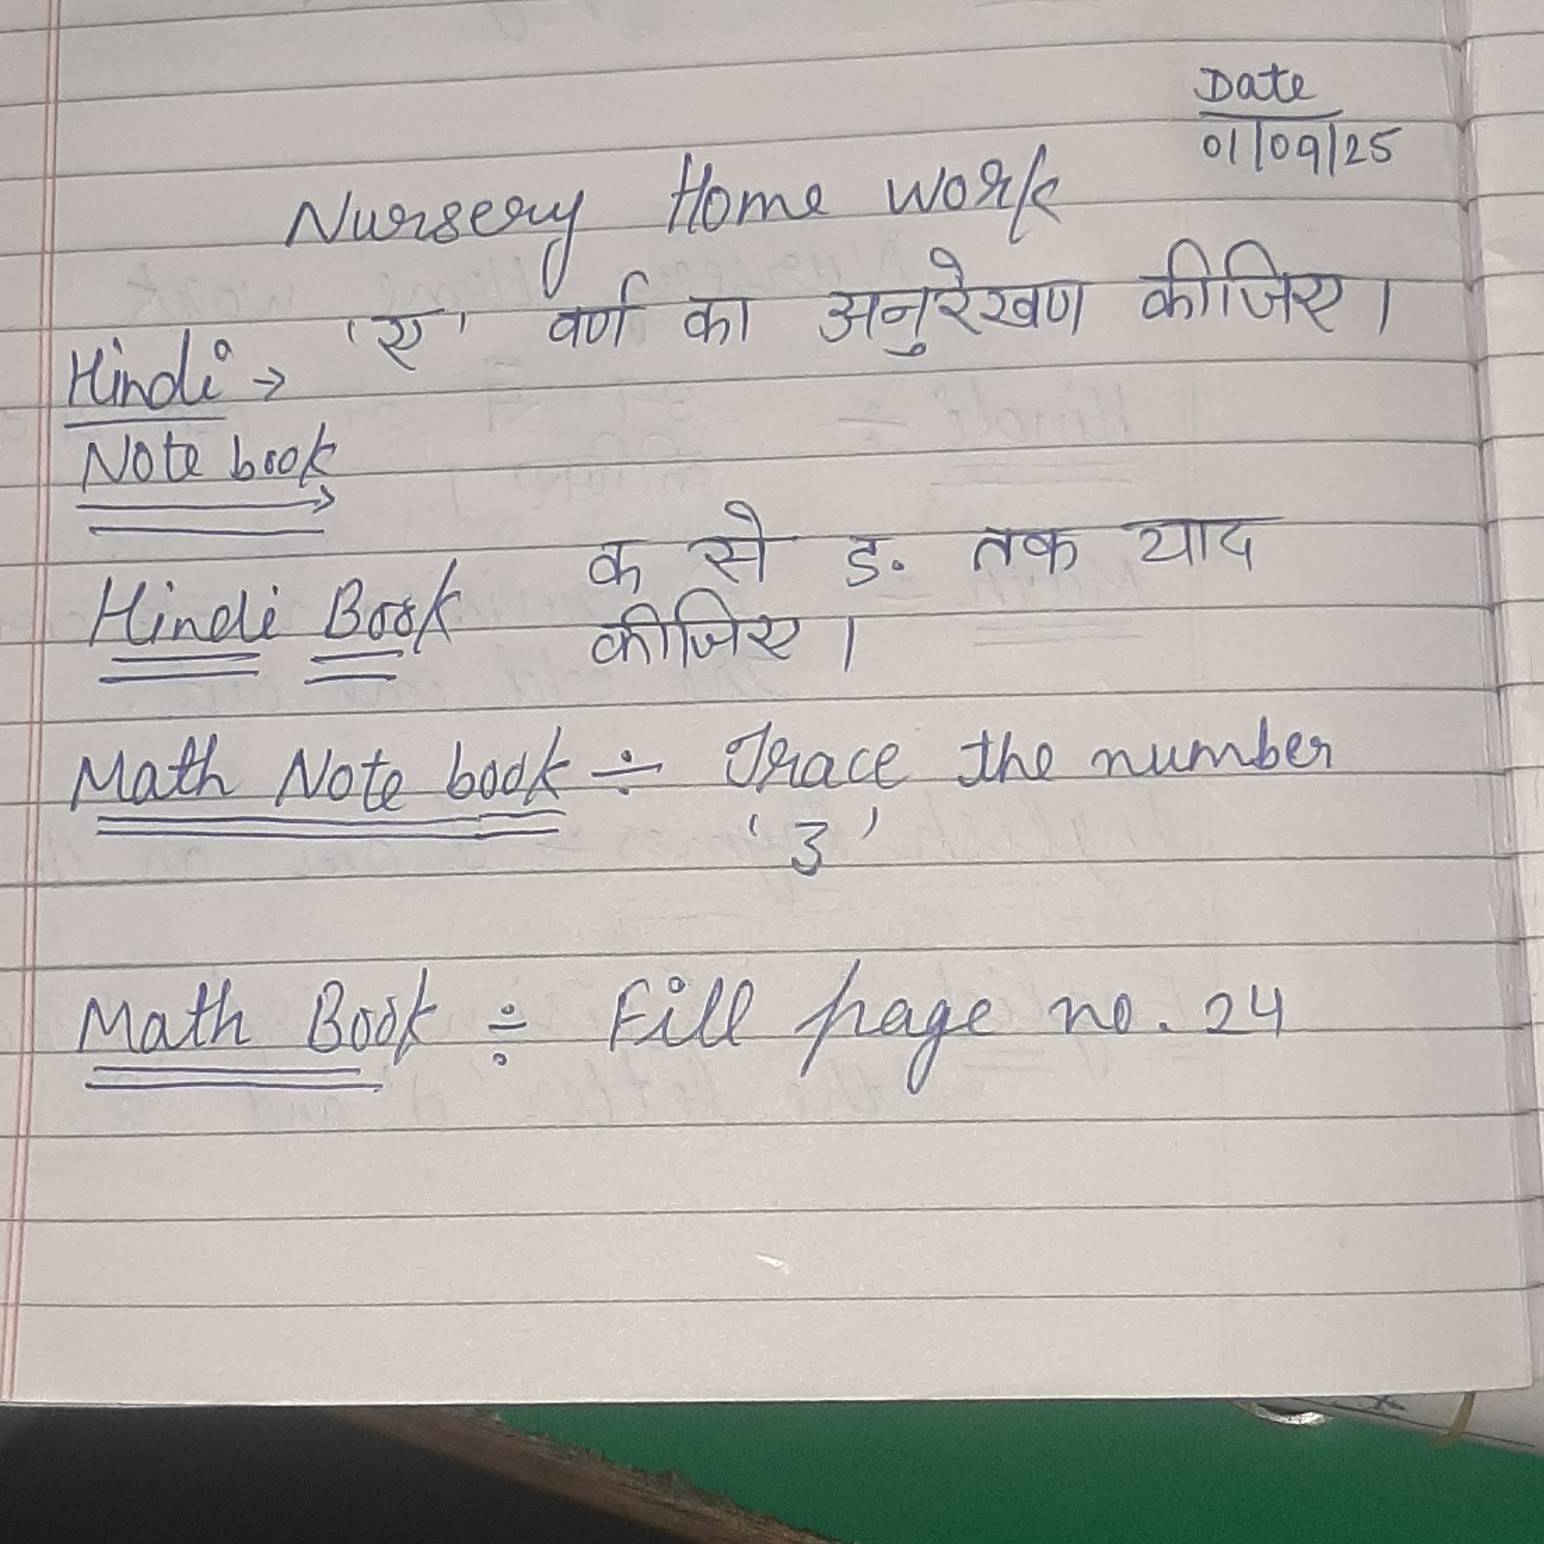 Date
01/09/25
Nursery Home work
Hindi → 'ए' वर्ण का अनुरेखण कीजिए।
Note book
Hindi Book क से ड. तक याद
कीजिए।
Math Note book ÷ Trace the number
'3'
Math Book ÷ Fill page no. 24